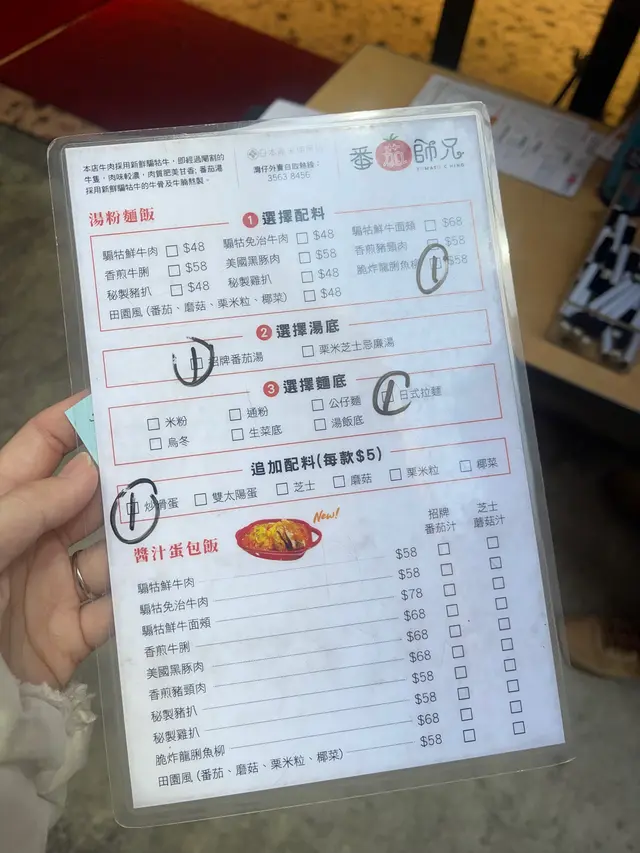 本店牛肉採用新鮮騸牯牛，即經過閹割的
牛隻，肉味較濃，肉質肥美甘香；番茄湯
採用新鮮騸牯牛的牛骨及牛腩熬製。
灣仔外賣自取熱線：
3563 8456
番茄師兄
湯粉麵飯
1 選擇配料
騸牯鮮牛肉 $48 騸牯免治牛肉 $48 騸牯鮮牛面頰 $68
香煎牛脷 $58 美國黑豚肉 $58 香煎豬頸肉 $58
秘製豬扒 $48 秘製雞扒 $48 脆炸龍脷魚柳 1 $58
田園風（番茄、蘑菇、栗米粒、椰菜） $48
2 選擇湯底
1 招牌番茄湯 栗米芝士忌廉湯
3 選擇麵底
米粉 通粉 公仔麵 1 日式拉麵
烏冬 生菜底 湯飯底
追加配料(每款$5)
1 炒滑蛋 雙太陽蛋 芝士 蘑菇 栗米粒 椰菜
醬汁蛋包飯 New! 招牌番茄汁 芝士蘑菇汁
騸牯鮮牛肉 $58
騸牯免治牛肉 $58
騸牯鮮牛面頰 $78
香煎牛脷 $68
美國黑豚肉 $68
香煎豬頸肉 $68
秘製豬扒 $58
秘製雞扒 $58
脆炸龍脷魚柳 $68
田園風（番茄、蘑菇、栗米粒、椰菜） $58